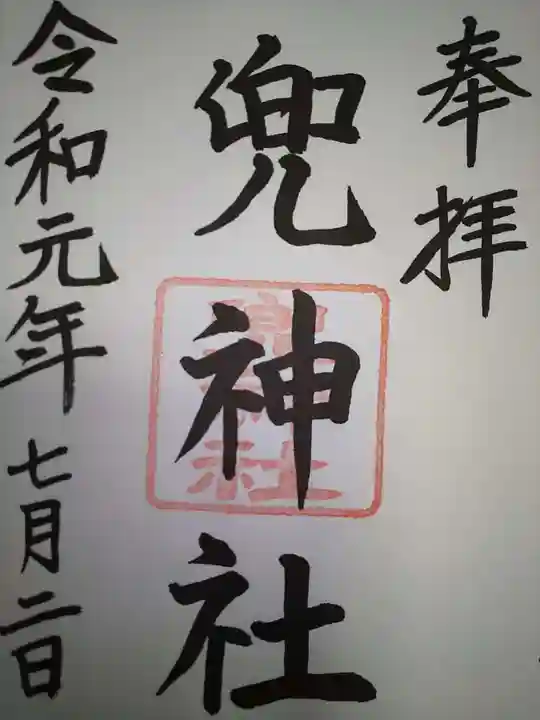 奉拝
兜神社
令和元年七月二日